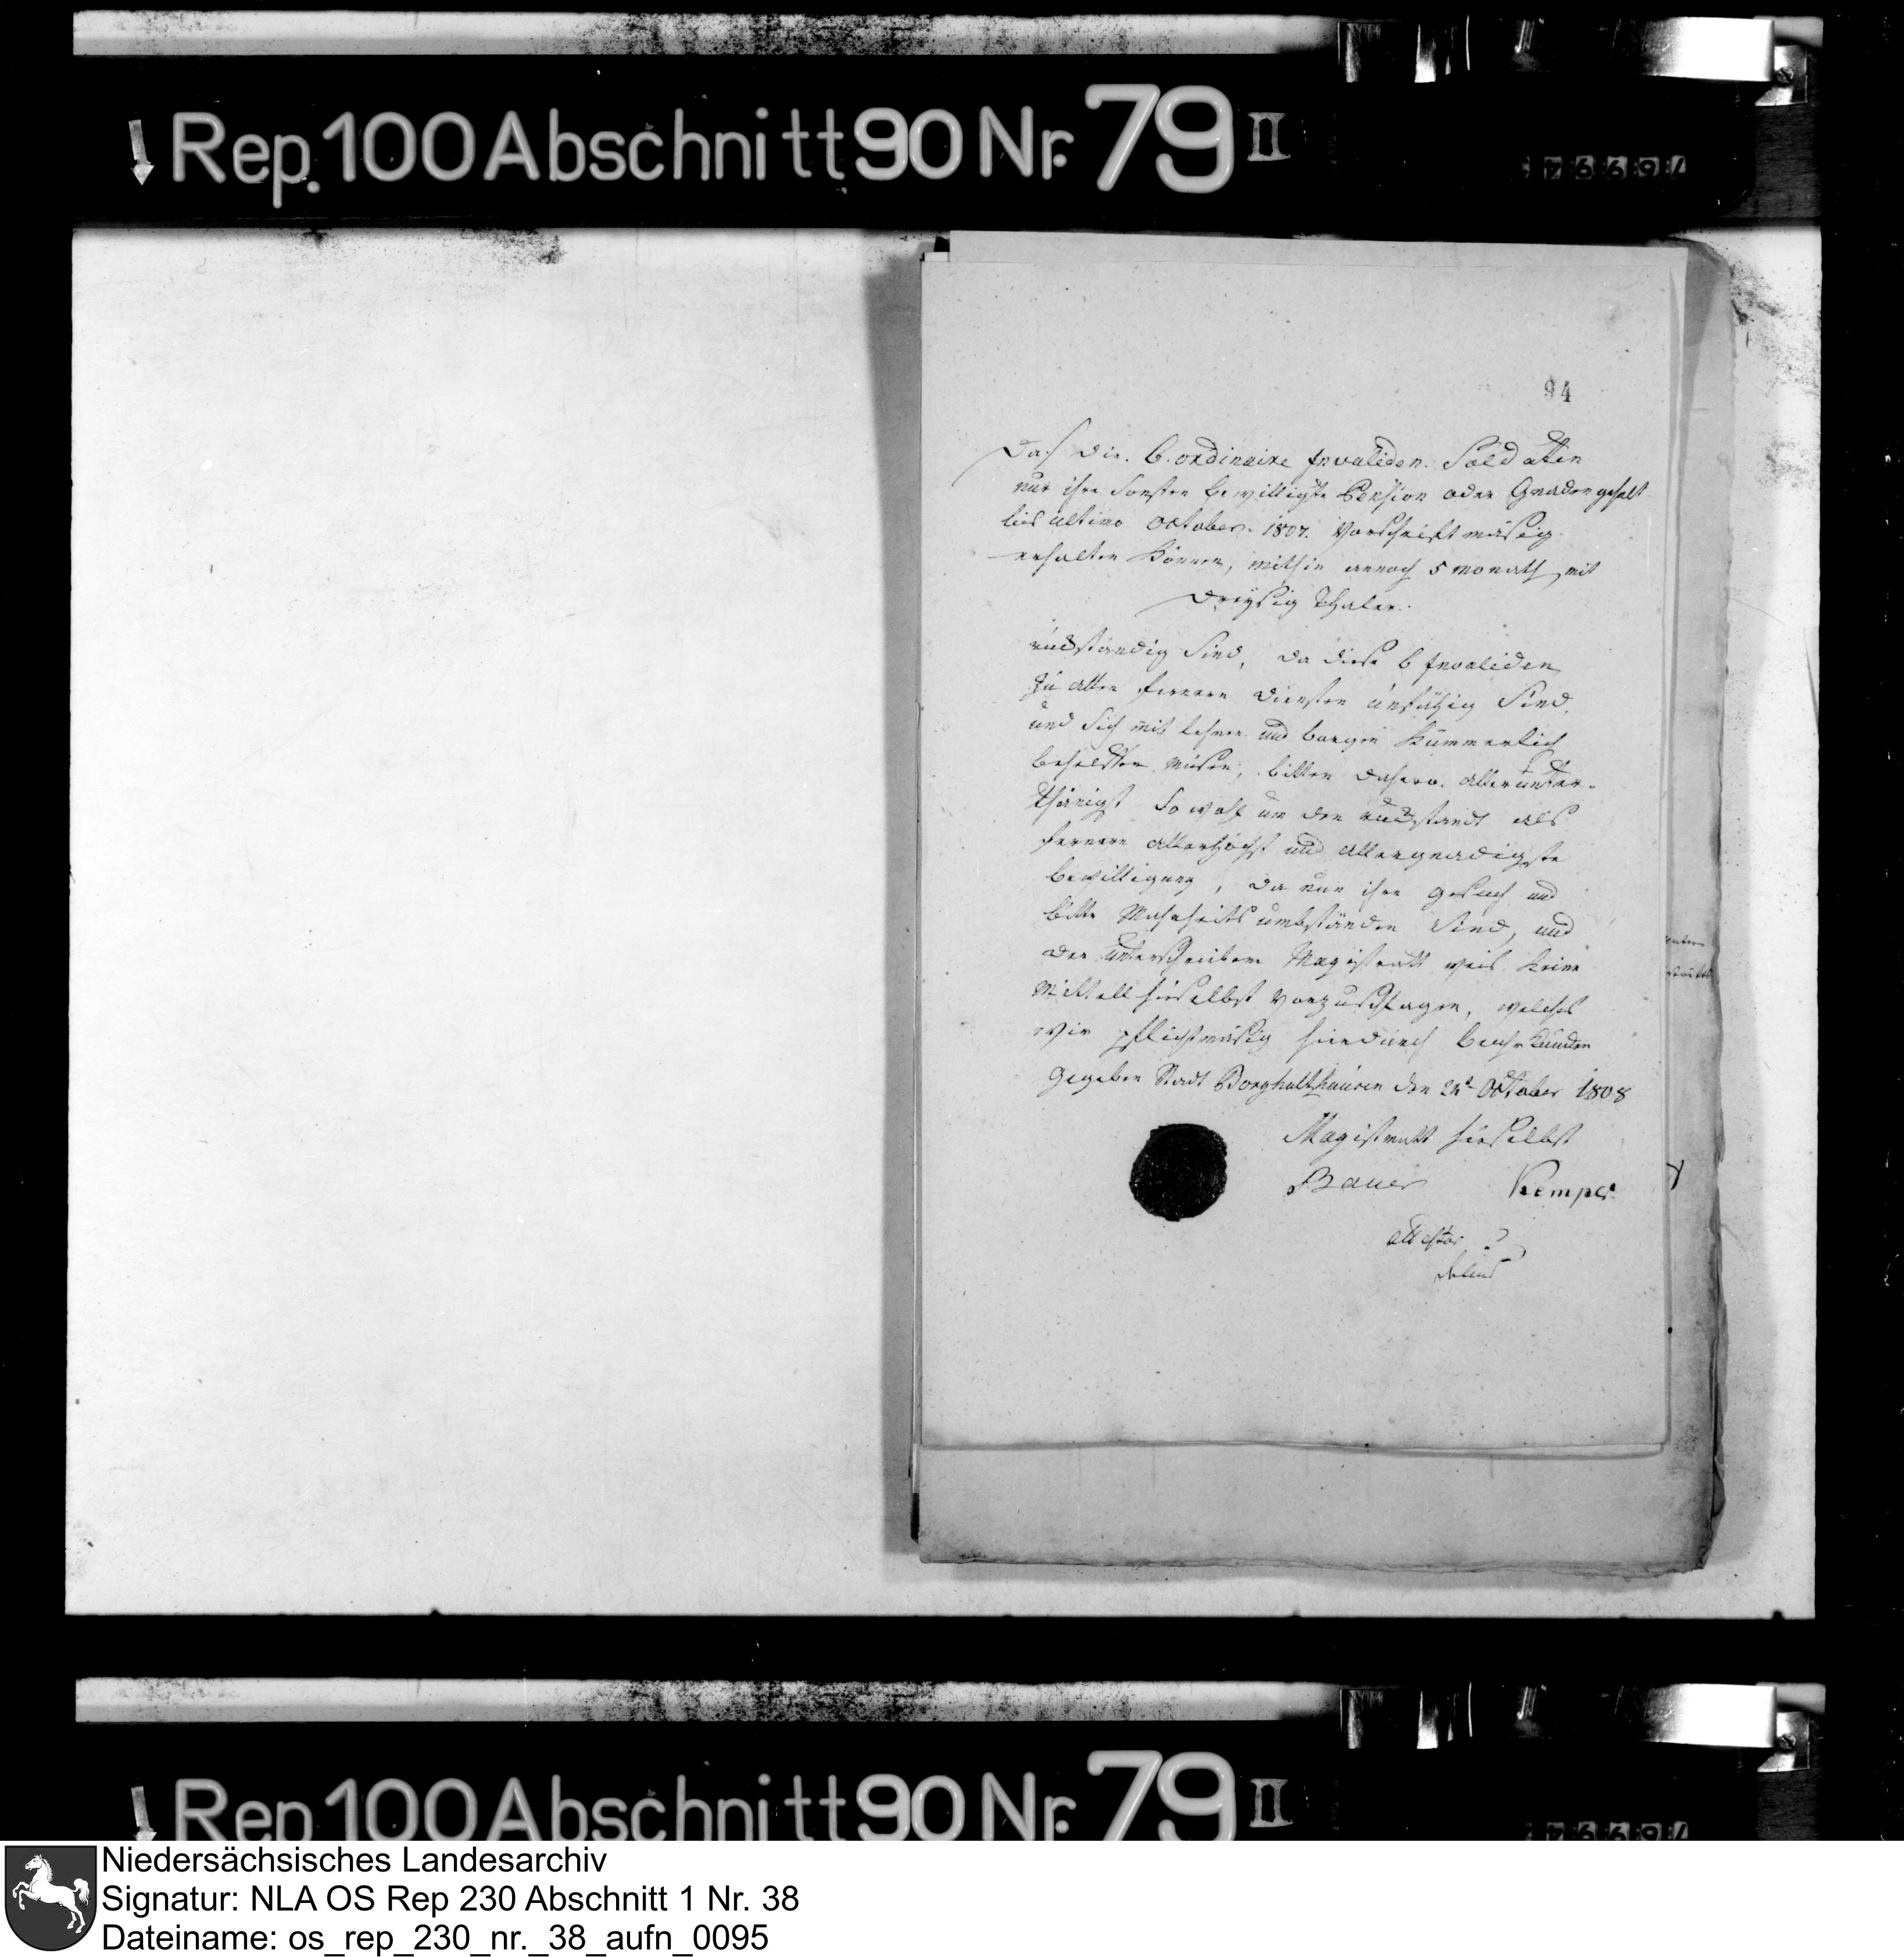 Rep. 100 Abschnitt 90 Nr. 79 II
76994
94
Das die 6. ordinaire Invaliden Soldatten
nur ihre sonsten bewilligte Pension oder Gnadengehalt
bis ultimo October 1807. Vorschriftmäsig
erhalten können, mithin annoch 5 Monath, mit
dreÿsig Thaler.
rückständig sind, da diese 6 Invaliden
zu allen fernern Diensten unfähig sind,
und sich mit lehnen und borgen kümmerlich
behelffen müsen, bitten dahero. allerunter-
thänigst so wohl um den rückstandt als
fernere allerhöchst und allergnadigste
bewilligung, da nun ihre gesuch und
bitte Wahrheits umbständen sind, und
der unterschriebene Magistratt weis keine
Mittell hieselbst vorzuschlagen, welches
wir pflichtmäsig hierdurch beuhrkunden
Gegeben Stadt Borghultzhausen den October 1808
Magistratt hieselbst
Bauer Kemper
attestor
Delius
Rep 100 Abschnitt 90 Nr. 79 II
76994
Niedersächsisches Landesarchiv
Signatur: NLA OS Rep 230 Abschnitt 1 Nr. 38
Dateiname: os_rep_230_nr._38_aufn_0095